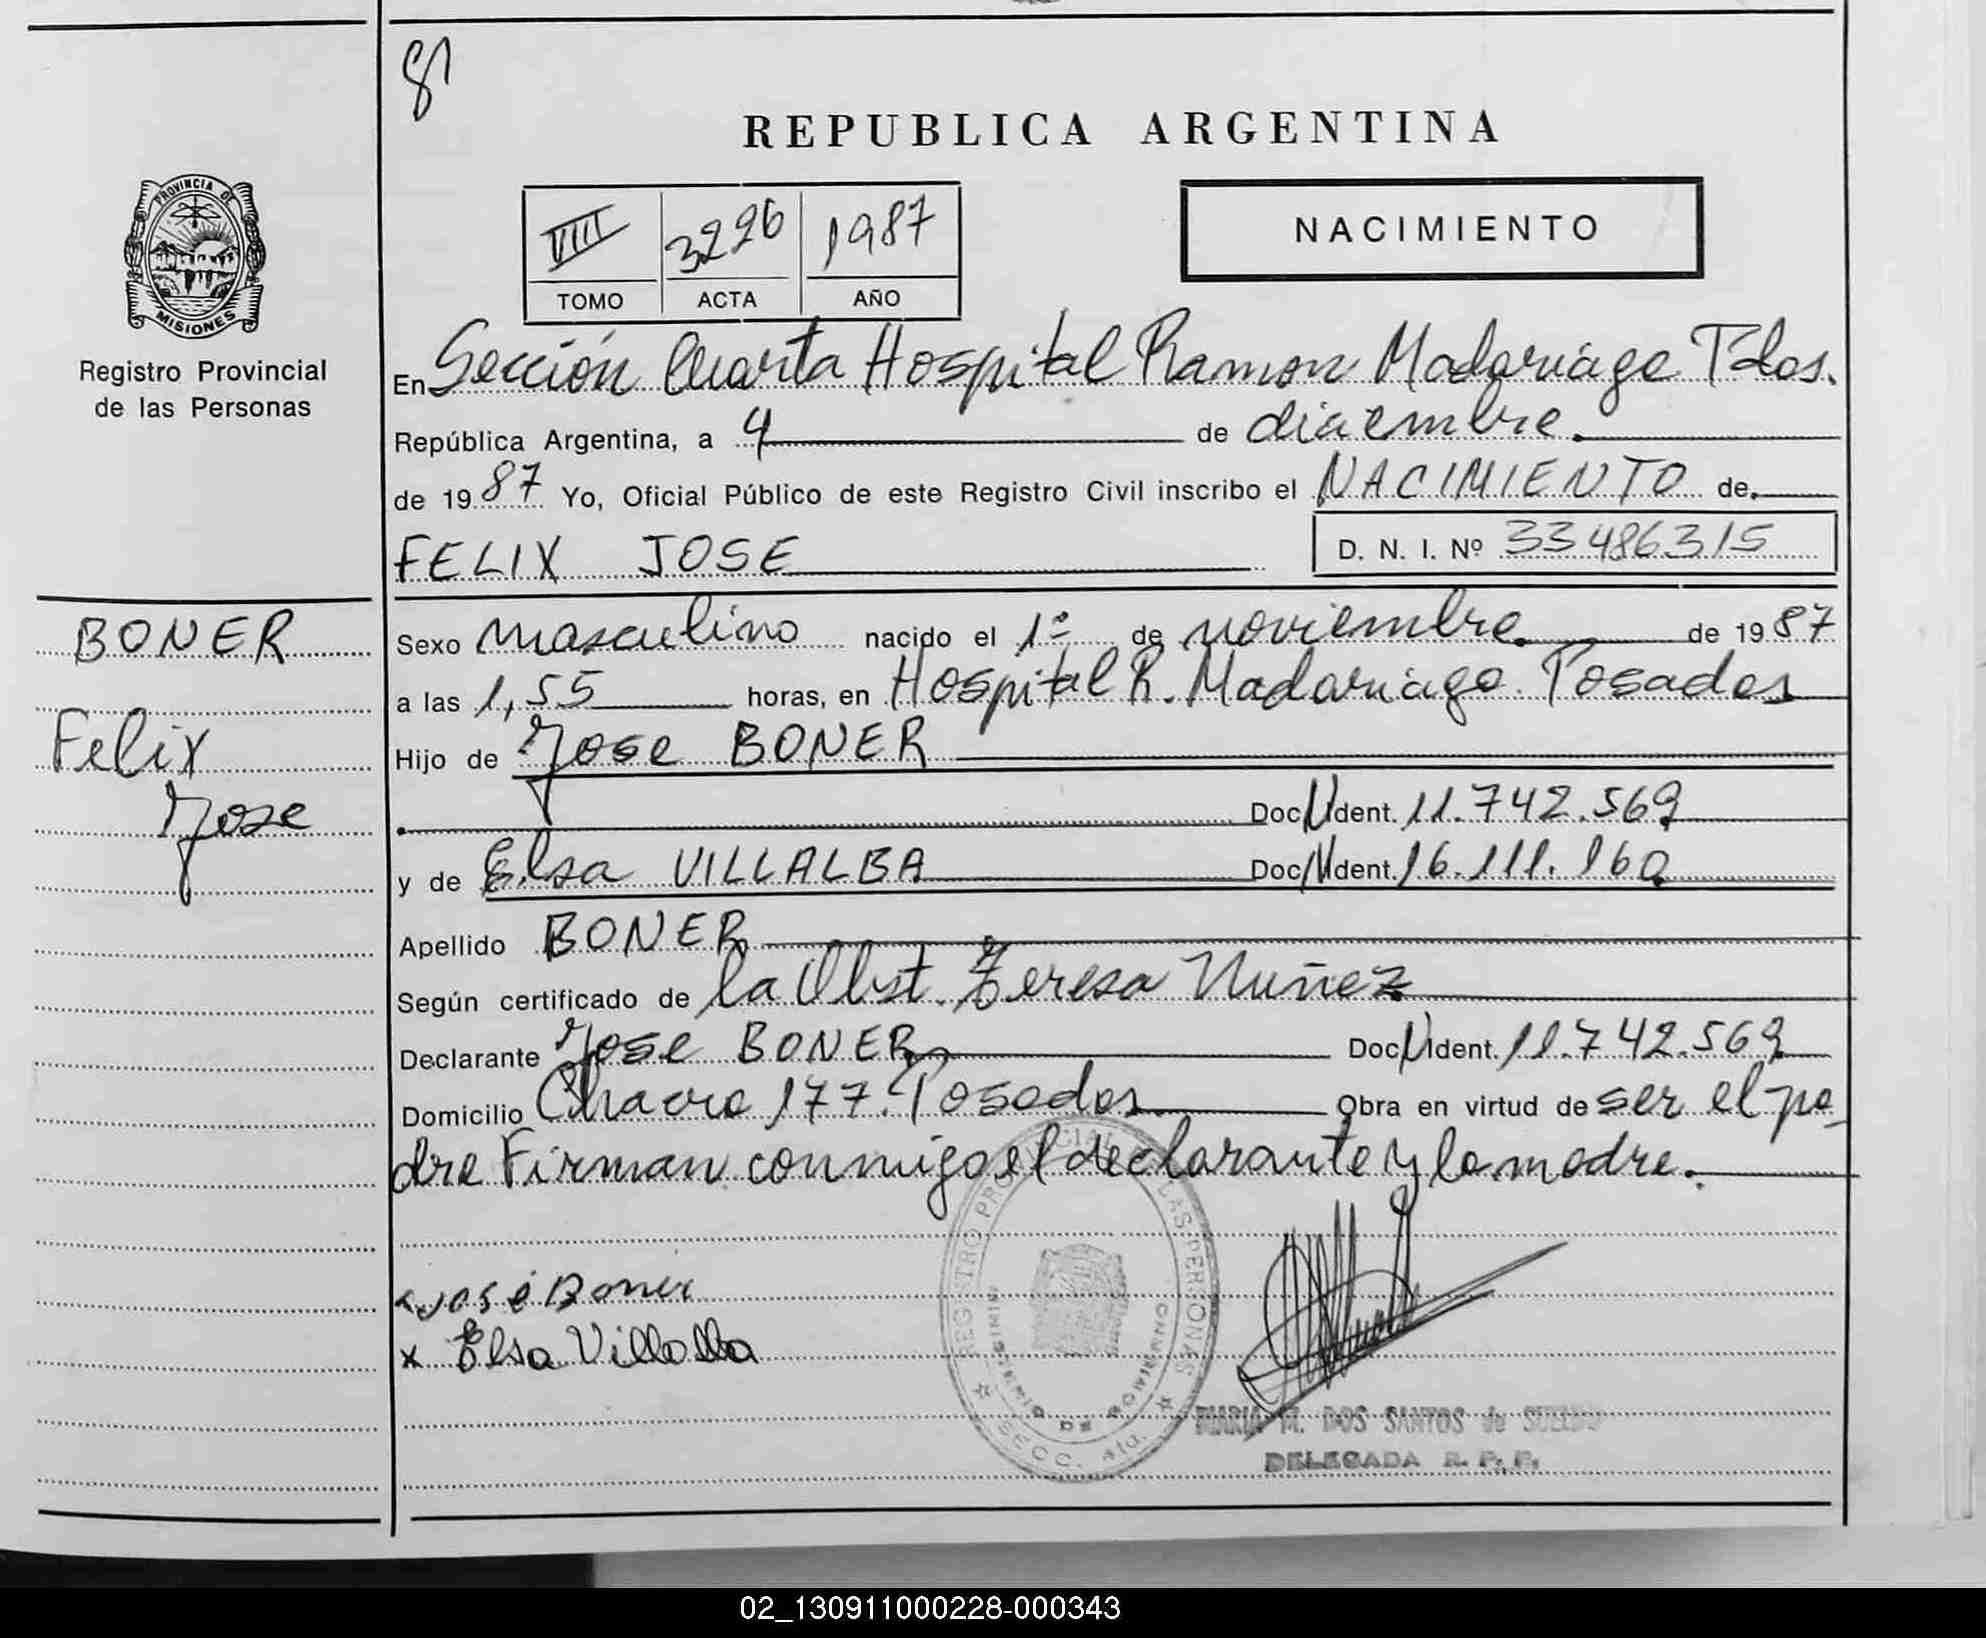 8
REPUBLICA ARGENTINA
PROVINCIA DE
MISIONES
Registro Provincial
de las Personas
VIII 3226 1987
TOMO ACTA AÑO
NACIMIENTO
En Sección Cuarta Hospital Ramon Madariaga Pdas.
República Argentina, a 4 de diciembre.
de 1987 Yo, Oficial Público de este Registro Civil inscribo el NACIMIENTO de
FELIX JOSE D. N. I. Nº 33486315
BONER
Felix
Jose
Sexo masculino nacido el 1º de noviembre de 1987
a las 1,55 horas, en Hospital R. Madariaga Posadas
Hijo de Jose BONER
Doc N Ident. 11.742.569
y de Elsa VILLALBA Doc N Ident. 16.111.160
Apellido BONER
Según certificado de la Obst. Teresa Nuñez
Declarante Jose BONER Doc N Ident. 11.742.569
Domicilio 177. Posadas Obra en virtud de ser el pa
dre Firman conmigo el declarante y la madre.
x José Boner
x Elsa Villalba
REGISTRO PROVINCIAL LAS PERSONAS
MINISTERIO DE GOBIERNO
SECC. 4ta.
MARIA M. DOS SANTOS de
DELEGADA R. P. P.
02_130911000228-000343